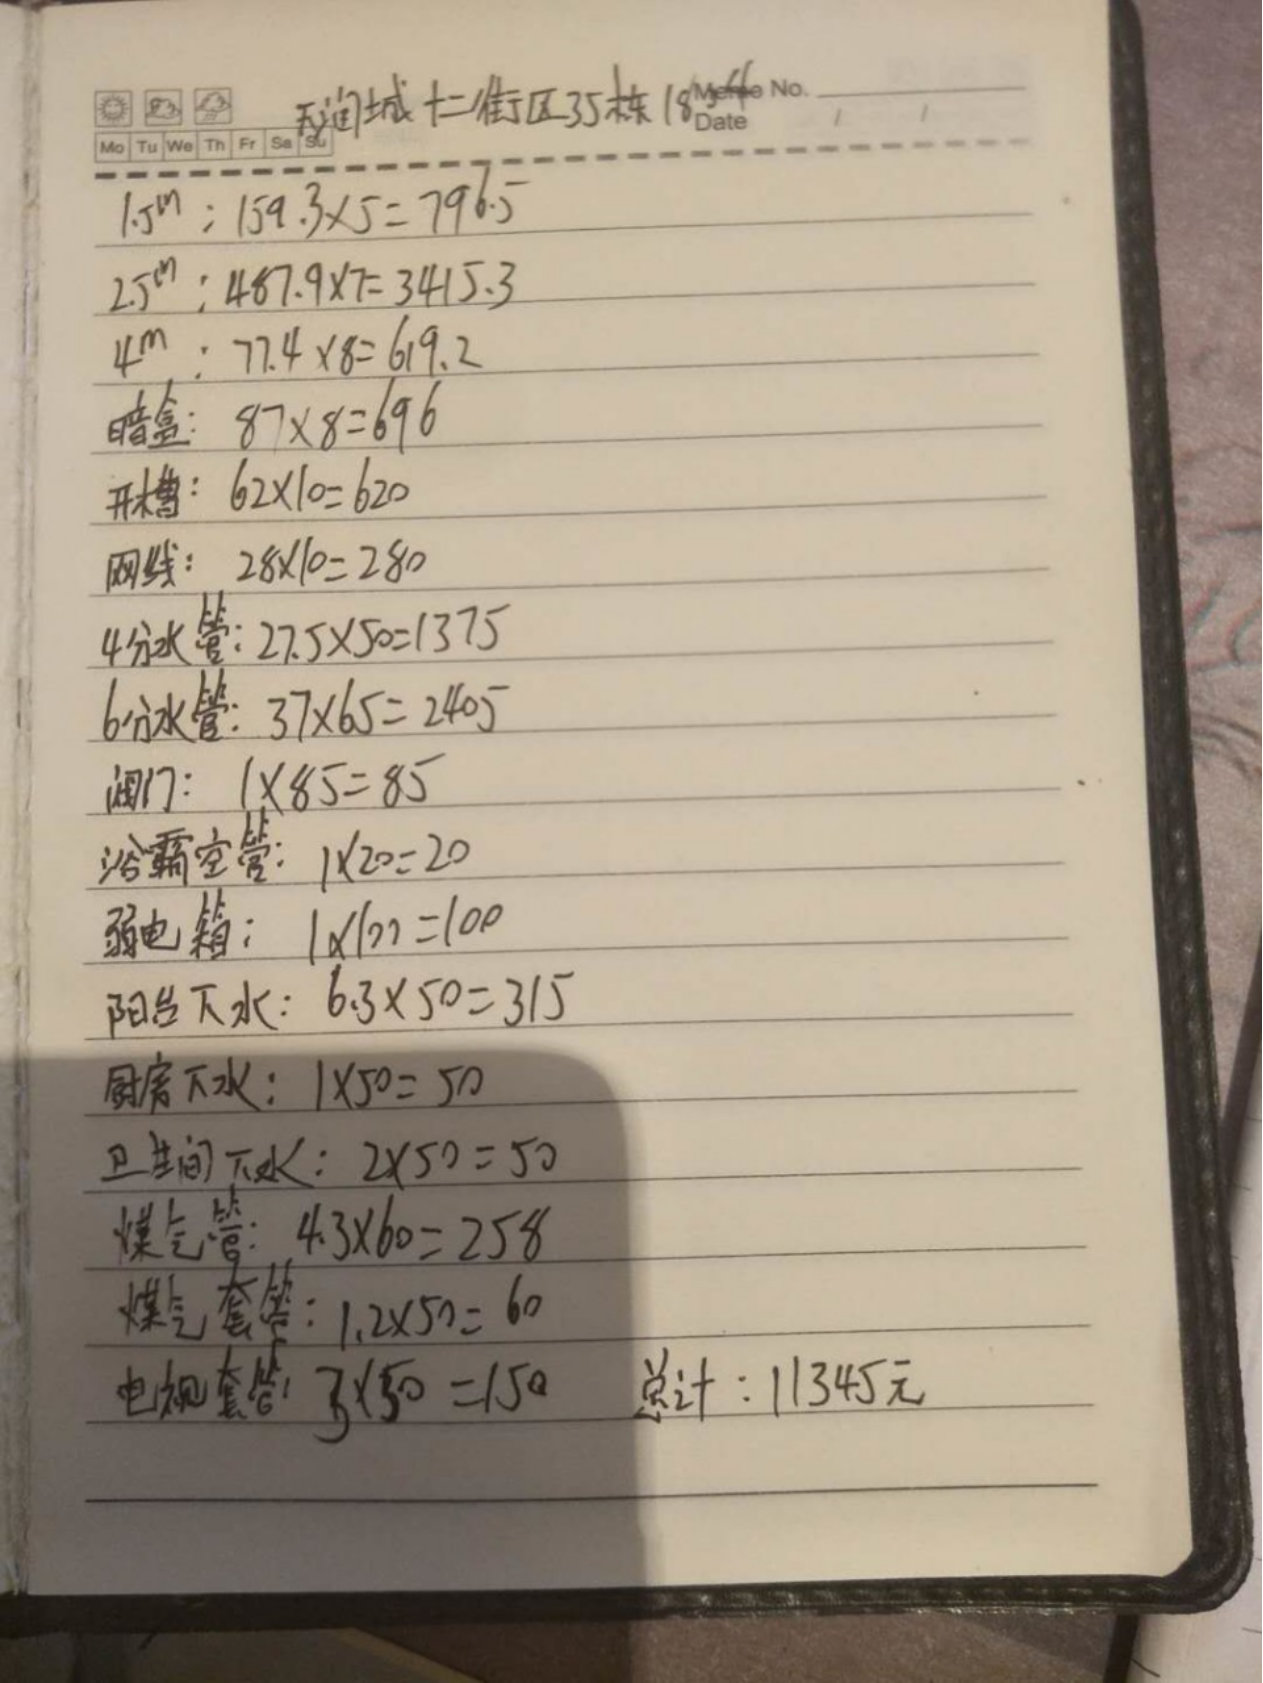 天润城十二街区35栋18
Memo No.
Mo Tu We Th Fr Sa Su
Date / /
1.5m : 159.3×5=796.5
2.5m : 487.9×7=3415.3
4m : 77.4×8=619.2
暗盒: 87×8=696
开槽: 62×10=620
网线: 28×10=280
4分水管: 27.5×50=1375
6分水管: 37×65=2405
阀门: 1×85=85
浴霸空管: 1×20=20
弱电箱: 1×100=100
阳台下水: 6.3×50=315
厨房下水: 1×50=50
卫生间下水: 2×50=50
煤气管: 4.3×60=258
煤气套管: 1.2×50=60
电视套管: 3×50=150 总计: 11345元